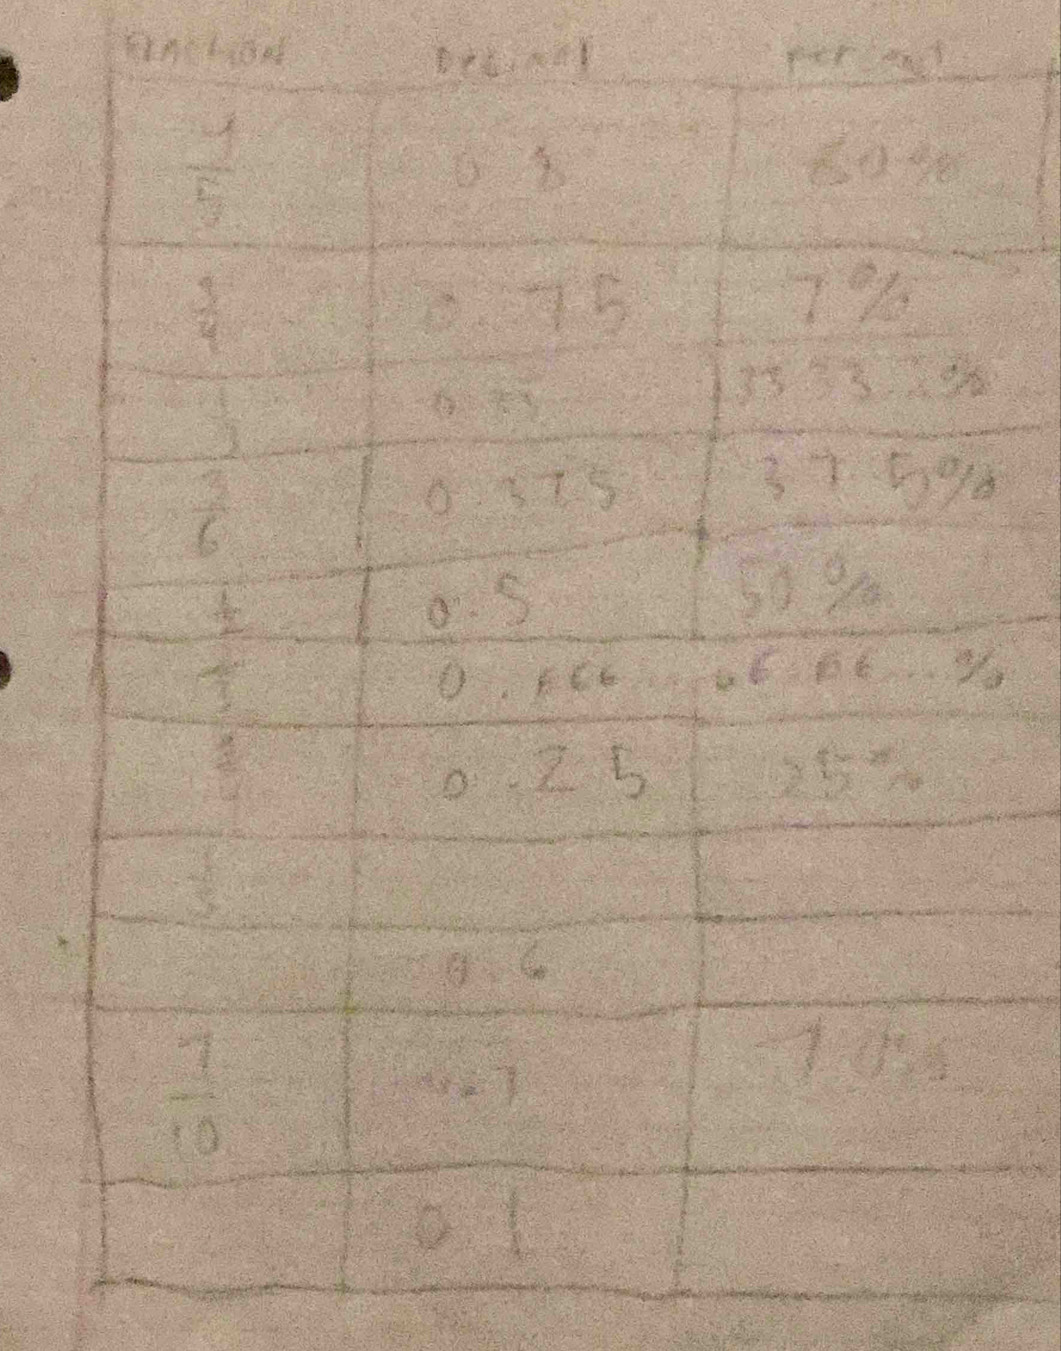 FRACTION Decimal percent
4/5 0.8 80%
3/4 0.75 7 %
1/3 0.33 33.33...%
3/6 0.375 37.5%
0.5 50%
0.666... 66.66...%
0.25 25%
0.6
7/10 0.7 70%
0.1